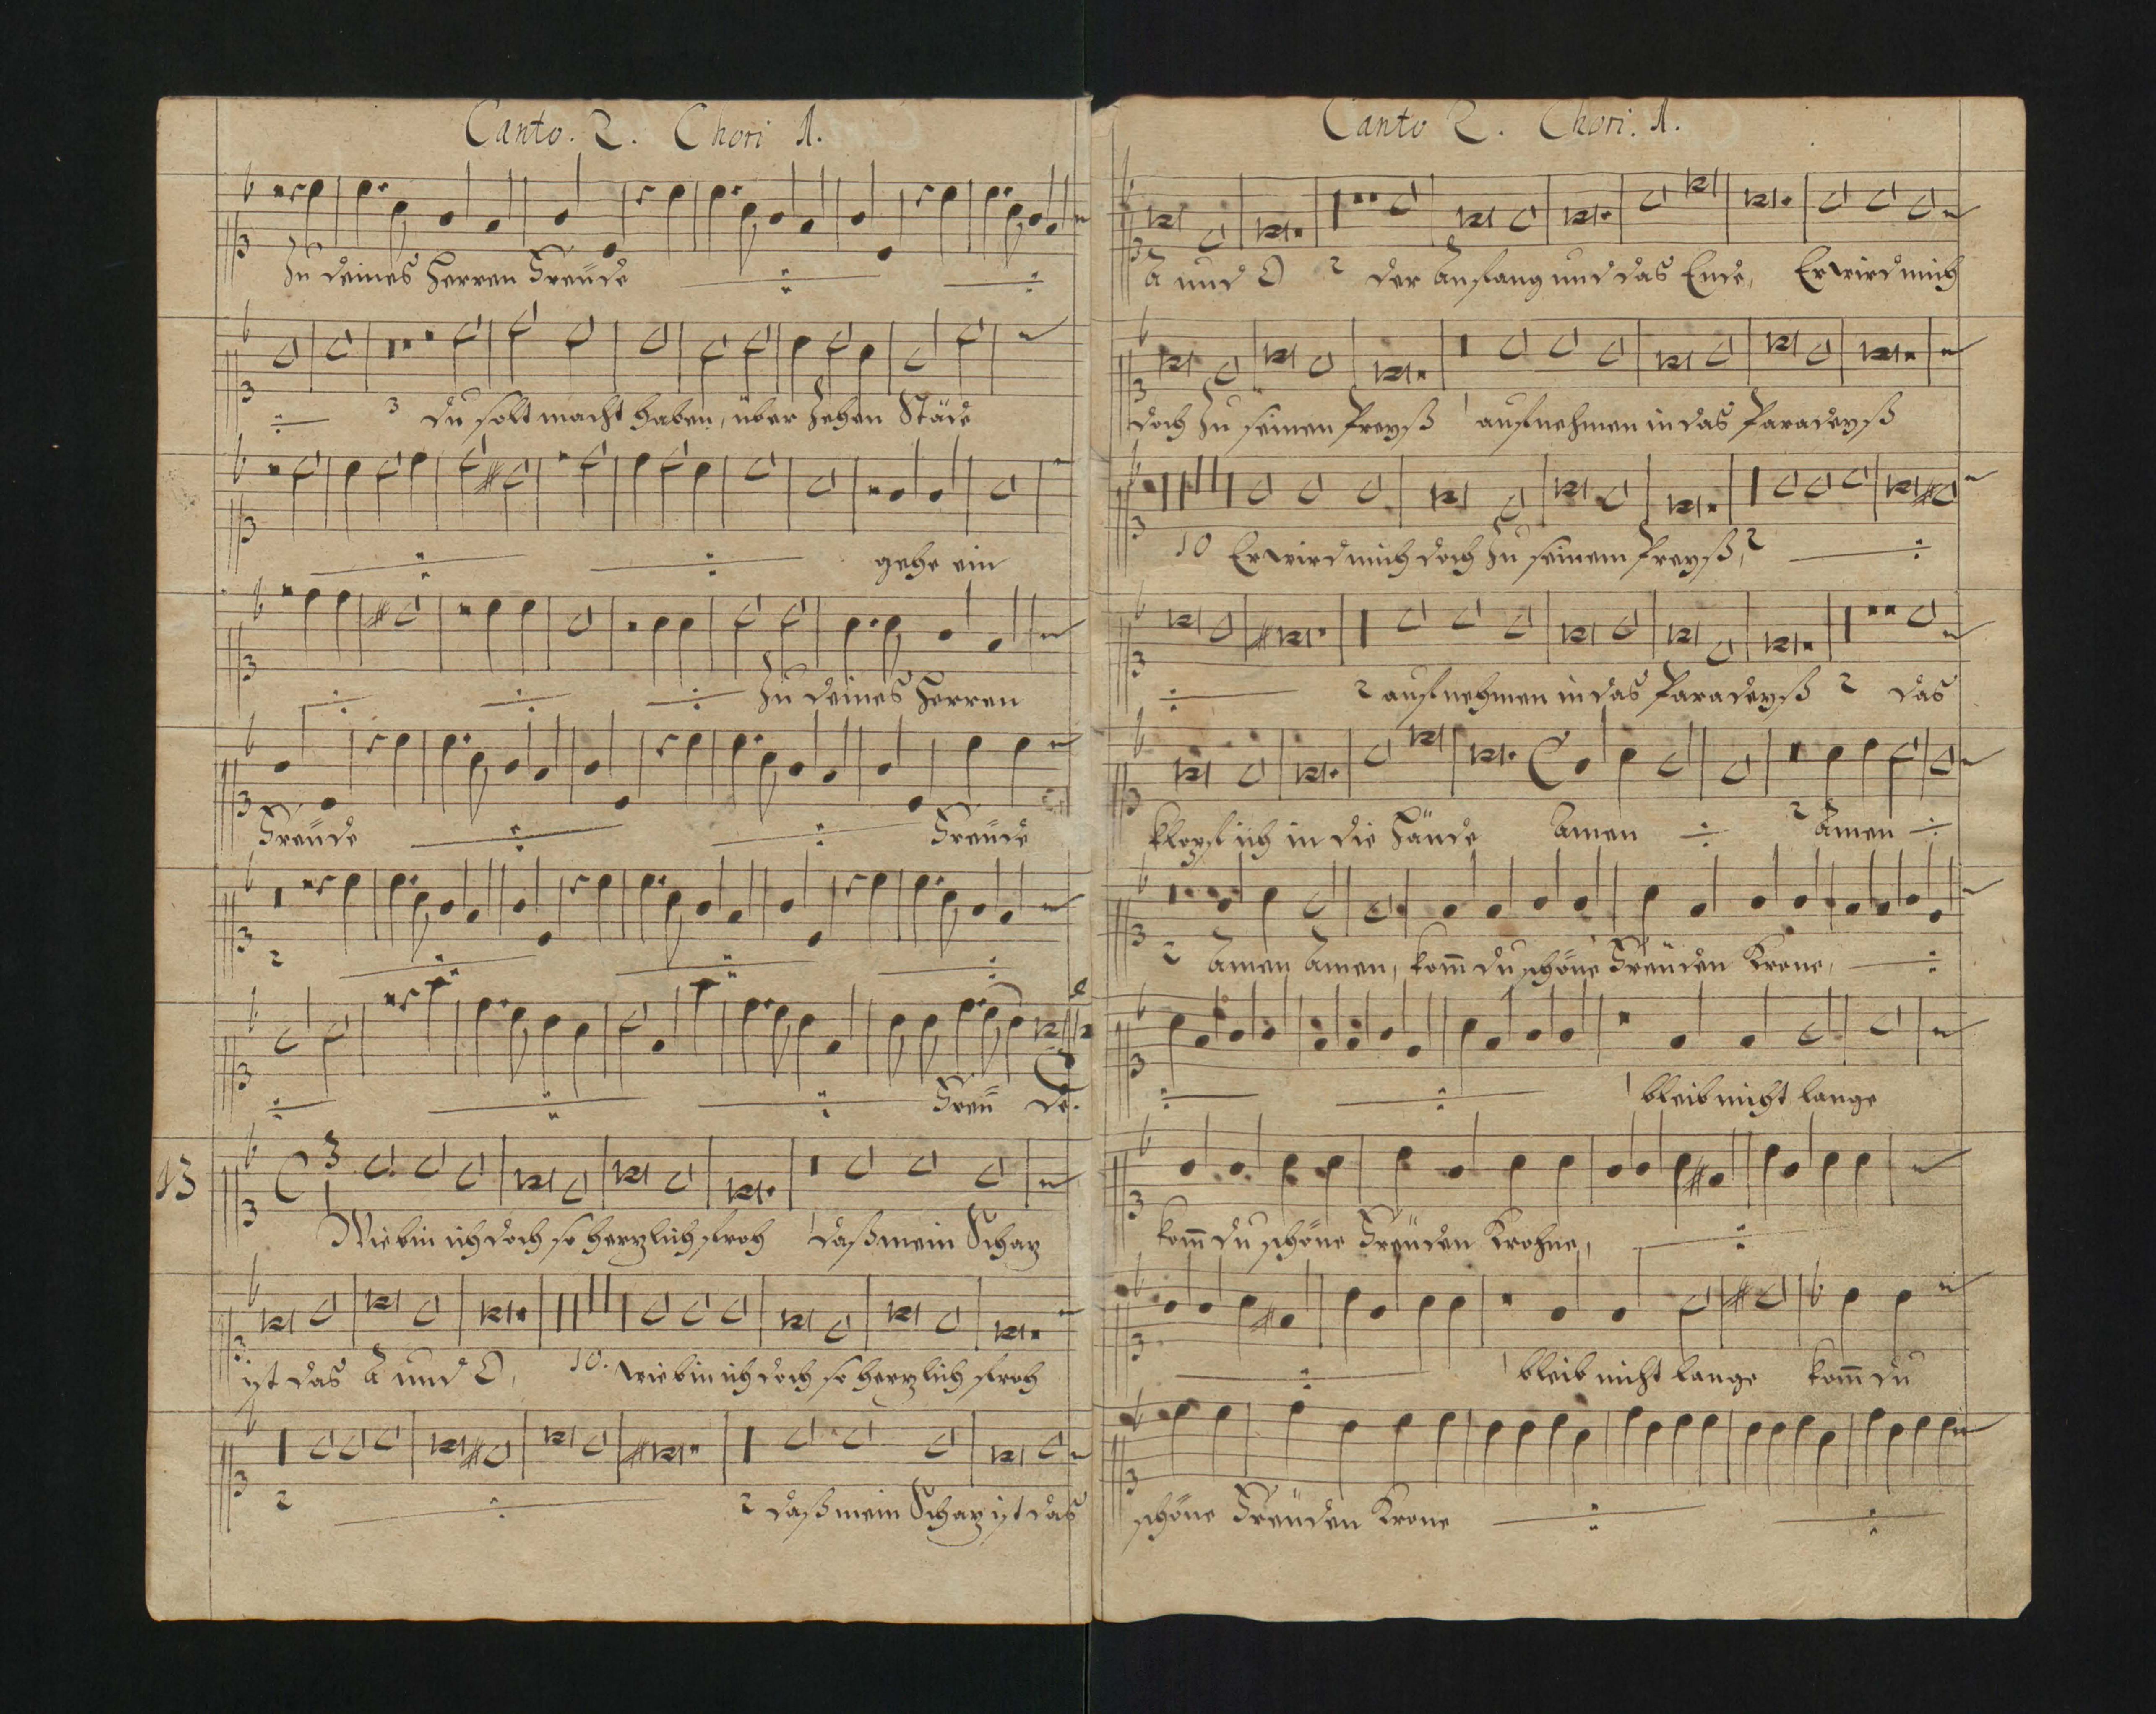 Canto. 2. Chori 1.
Zu deines Herren Freude
3 du solt macht haben, über Zehen Städ
gehe ein
Zu deines Herren
Freude Freude
2
Freu de.
13
Wie bin ich doch so herzlich froh 1 daß mein Schaz
ist das A und O, 10. wie bin ich doch so herzlich froh
2 2 daß mein Schaz ist das
Canto 2. Chori. 1.
A und O 2 der Anfang und das Ende, Er wird mich
doch Zu seinen Preyß 1 aufnehmen in das Paradeyß
10 Er wird mich doch Zu seinem Preyß, 2
2 aufnehmen in das Paradeyß 2 das
klopf ich in die Hände Amen 2 Amen
2 Amen Amen, kom̄ du schöne Freuden Krone,
1 bleib nicht lange
kom̄ du schöne Freuden Krohne,
1 bleib nicht lange kom̄ du
schöne Freuden Krone